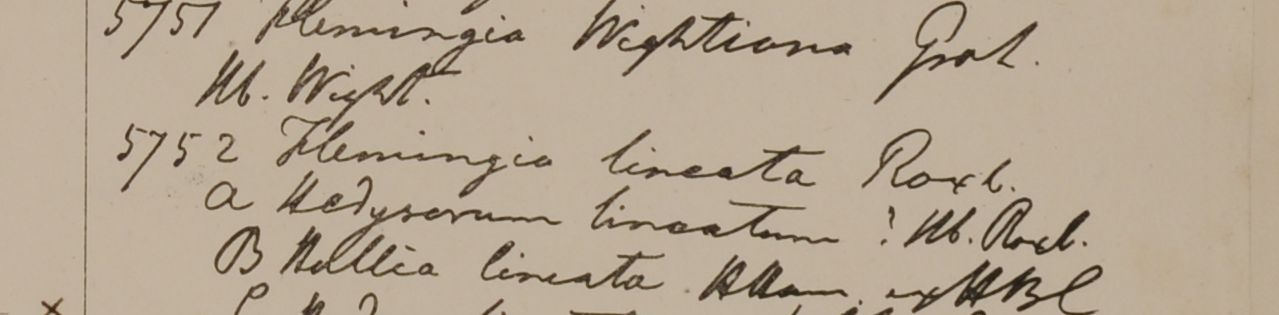 5751 Flemingia Wightiana Grah.
Hb. Wight.
5752 Flemingia lineata Roxb.
a Hedysarum lineatum ? Hb. Roxb.
B lineata HHam. ex HBC